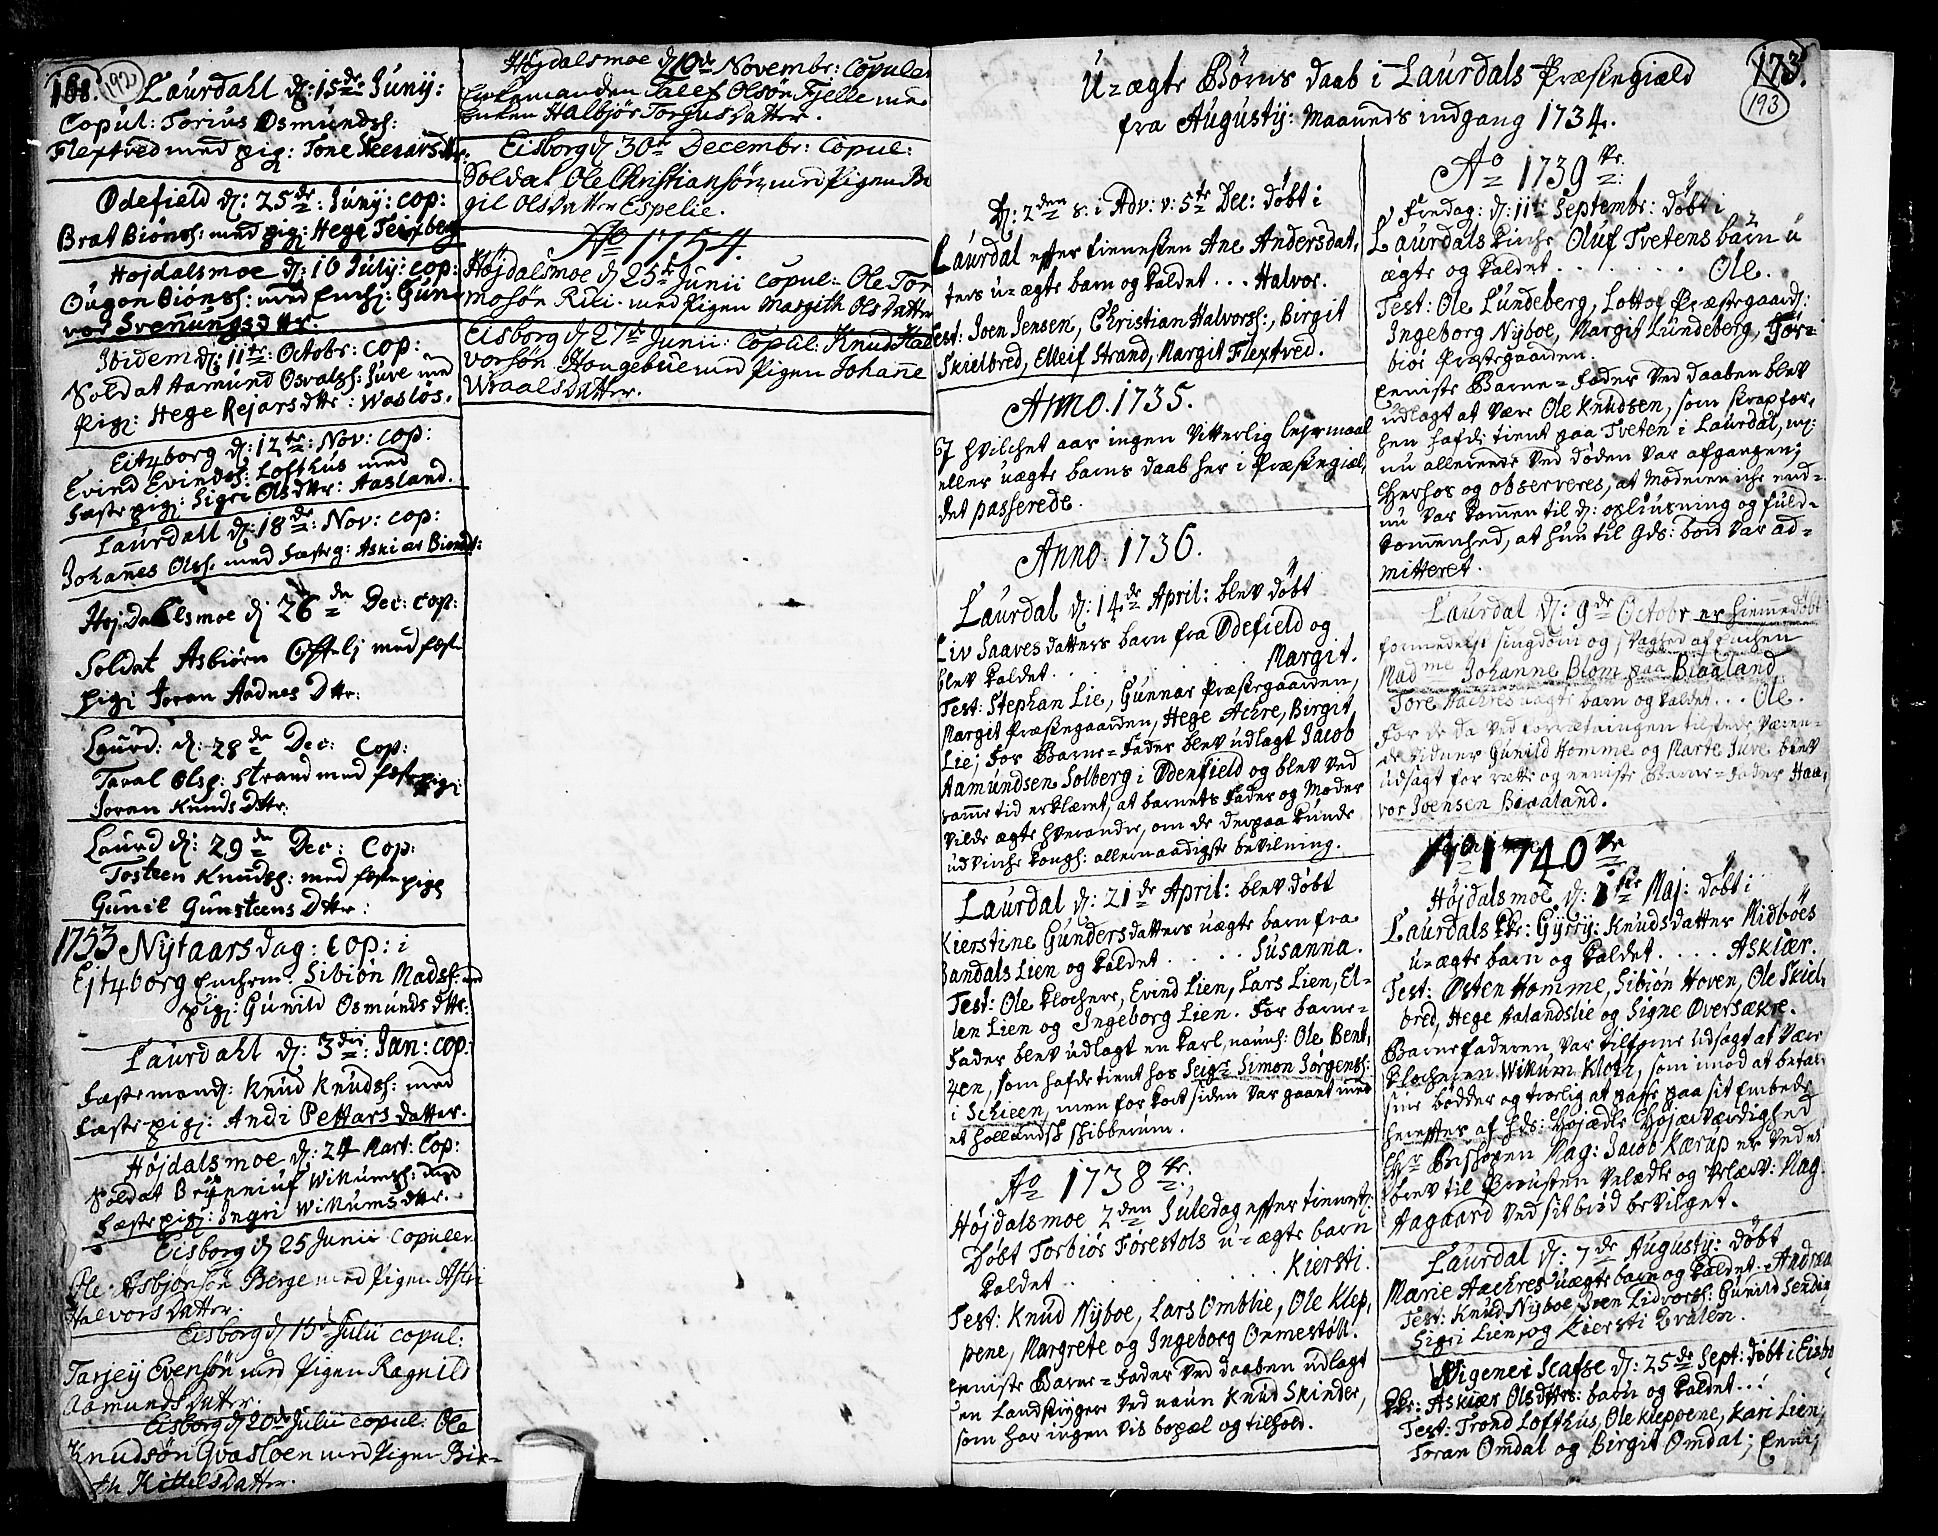 168. 192
Laurdahl d: 15de Junij:
Copul: Torius Osmundsh:
Flextved med pig: Tone
Ødefield d: 25de: Junij: cop:
Brat Biönsh: med pig: Hege Teixberg
Højdalsmoe d: 16 Julij: cop:
Ougon Biönsh: med Enchj: Gun-
vor Svennungsdttr.
Ibidem d: 11te: Octobr: cop:
Soldat Aamund Osvalsh: Juve med
pigj: Hege Rejarsdttr: Waslös.
Eitzborg d: 12te: Nov: cop:
Evind Evindsh: Lofthus med
fæstepigj: Sigri Olsdttr: Aasland.
Laurdall d: 18de: Nov: cop:
Johannes Olsh. med fæsteg: Askiær
Hojdahlsmoe d: 26de Dec: cop:
Soldat Asbiörn Offtelj med fæste
pigj Joran Aadnes Dttr:
Laurd: d: 28de Dec: Cop:
Taral Olsh: Strand med fæstepigj:
Joren Knuds Dttr.
Laurd d: 29de Dec: Cop:
Tosteen Knudsh: med fæstepige
Gunil Gunsteens Dttr:
1753 Nytaarsdag: Cop: i
Ejtzborg Enchem: Sibiön Madsh: med
pigj: Gunild Osmunds dttr:
Laurdahl d: 3die: Jan: cop:
fæstemand: Knud Knudsh: med
fæstepigj: Andi Pettars datter.
Højdalsmoe d: 24 Mart: Cop:
Soldat Brÿnniuf Wikumsh: med
fæstepigj: Ingri Wikumsdttr.
Eisborg d 25 Junii copuler
Ole Asbjönsön Berge med Pigen Astri
Halvorsdatter.
Eisborg d 15 Julii copul:
Tarjej Evensön med Pigen Ragnild
Aamundsdatter.
Eisborg d 20de Julii copul: Ole
Knudsön Qvasloen med Pigen Bir-
th Kittelsdatter.
Højdalsmoe d 10de Novembr: Copuler
Enkemanden Talef Olsön Fjelle med
Enken Halbjör Torgusdatter.
Eisborg d 30te Decembr: copul:
Soldat Ole Christiansön med Pigen Bi
gil Olsdatter Espelie.
Ao 1754.
Højdalsmoe d 25de Junii copul: Ole Tor
mosön Riii med Pigen Margith Olsdatter
Eisborg d 27de Junii: copul: Knud Hal
vorsön Hougebue med Pigen Johanne
Wraalsdatter.
173.
193
U=ægte Børns daab i Laurdals Præstegiæld
fra Augustij: maaneds indgang 1734.
D: 2den S: i Adv: v: 5te Dec: døbt i
Laurdal efter tienesten Ane Andersdat,
ters u=ægte barn og kaldet . . . Halvor.
Test: Joen Jensen, Christian Halvorsh:, Birgit
Skielbred, Elleif Strand, Margit Flextved.
Anno. 1735.
I hvilchet aar ingen vitterlig lejermaal
eller uægte barns daab her i Præstegiæl,
det passerede.
Anno. 1736.
Laurdal d: 14de April: blev døbt
Liv Saavesdatters barn fra Ødefield og
blev kaldet . . Margit.
Test: Stephan Lie, Gunnar Præstegaarden,
Margit Præstegaarden, Hege Achre, Birgit
Lie; for Barne=fader blev udlagt Jacob
Aamundsen Solberg i Ødenfield og blev ved
samme tid erklæret, at barnets fader og moder
vilde ægte hverandre, om de derpaa kunde
udvirche Kongh: allernaadigste bevilning.
Laurdal d: 21de April: blev døbt
Kierstine Gundersdatters uægte barn fra
Bandals Lien og kaldet . . . . Susanna.
Test: Ole Klochere, Evind Lien, Lars Lien, El-
len Lien og Ingeborg Lien. for barne-
fader blev udlagt en karl, naunl: Ole Bent,
zen, som hafde tient hos Seigr Simon Jørgensh:
i Schieen, men for kort siden var gaaet med
et hollandsk skibberum.
Ao 1738 tr.
Højdalsmoe 2den Juledag efter tienest:
døbt Torbiör Förestøls u=ægte barn
kaldet . . . . . . Kiersti.
Test: Knud Nÿboe, Lars Omblie, Ole Klep,
pene, Margrete og Ingeborg Ormestöll.
Enniste Barne=fader ved daaben udlagt
en landstryger ved naun Knud Skinder,
som har ingen vis bopæl og tilhold.
Ao 1739 tr.
Fredag: d: 11te Septembr: døbt i
Laurdals Kirche Oluf Tvetens barn u
ægte og kaldet . . . . . . Ole.
Test: Ole Lundeberg, Lottof Præstegaard:
Ingeborg Nÿboe, Margit Lundeberg, Tör-
biör Præstegaarden.
Enniste Barne=fader ved daaben blev
udlagt at være Ole Knudsen, som strax for,
hen hafde tient paa Tveten i Laurdal, mj:
nu allerende ved døden var afgangen;
Herhos og observeres, at moderen iche end-
nu var kommen til d: opliusning og fuld-
kommenhed, at hun til Gds: bord var ad-
mitteret.
Laurdal d: 9de Octobr er hiemmedøbt
formedelst sÿgdom og svaghed af Enchen
Madme Johanne Blom paa Blaaland
Tore Aachres uægte barn og kaldet . . . Ole.
For de da ved forretningen tilstede væren-
de vidner Gunild Homme og Marte Juve blev
udsagt for rette og enniste Barne=fader Haa,
vor Jvensen Blaaland.
Ao 1740 tr
Højdalsmoe d: 1ste Maj: døbt i
Laurdals Kr: Gyrrj: Knudsdatter Midböes
u=ægte barn og kaldet . . . . Askiær.
Test: Østen Homme, Sibiön Hoven, Ole Skiel,
bred, Hege Aalandslie og Signe Oversakre.
Barnefaderen var tilforne udsagt at være
Klocheren Wikum Klotz, som imod at betale
sine bødder og troelig at passe paa sit Embede
herefter af Hds: Højædle Højærværdighed
Hr Bishopen Mag: Jacob Kærup er vedet
brev til Prousten velædle og velærv: Mag.
Aagaard ved sit brød bevilget.
Laurdal d: 7de Augustij: døbt
Marie Aachres uægte barn og kaldet. Andreas
Test: Knud Nÿboe, Sven Lidvorsh: Gunild Sendig
Sigri Lien, og Kiersti Evalen.
Wigener Scafse d: 25de Sept: døbt i Eisbo
Kr: Askiær Olsdttrs: barn og kaldet . . :
Test: Trond Lofthus, Ole Kleppene, Kari Lien,
Joran Omdal og Birgit Omdal; Enni